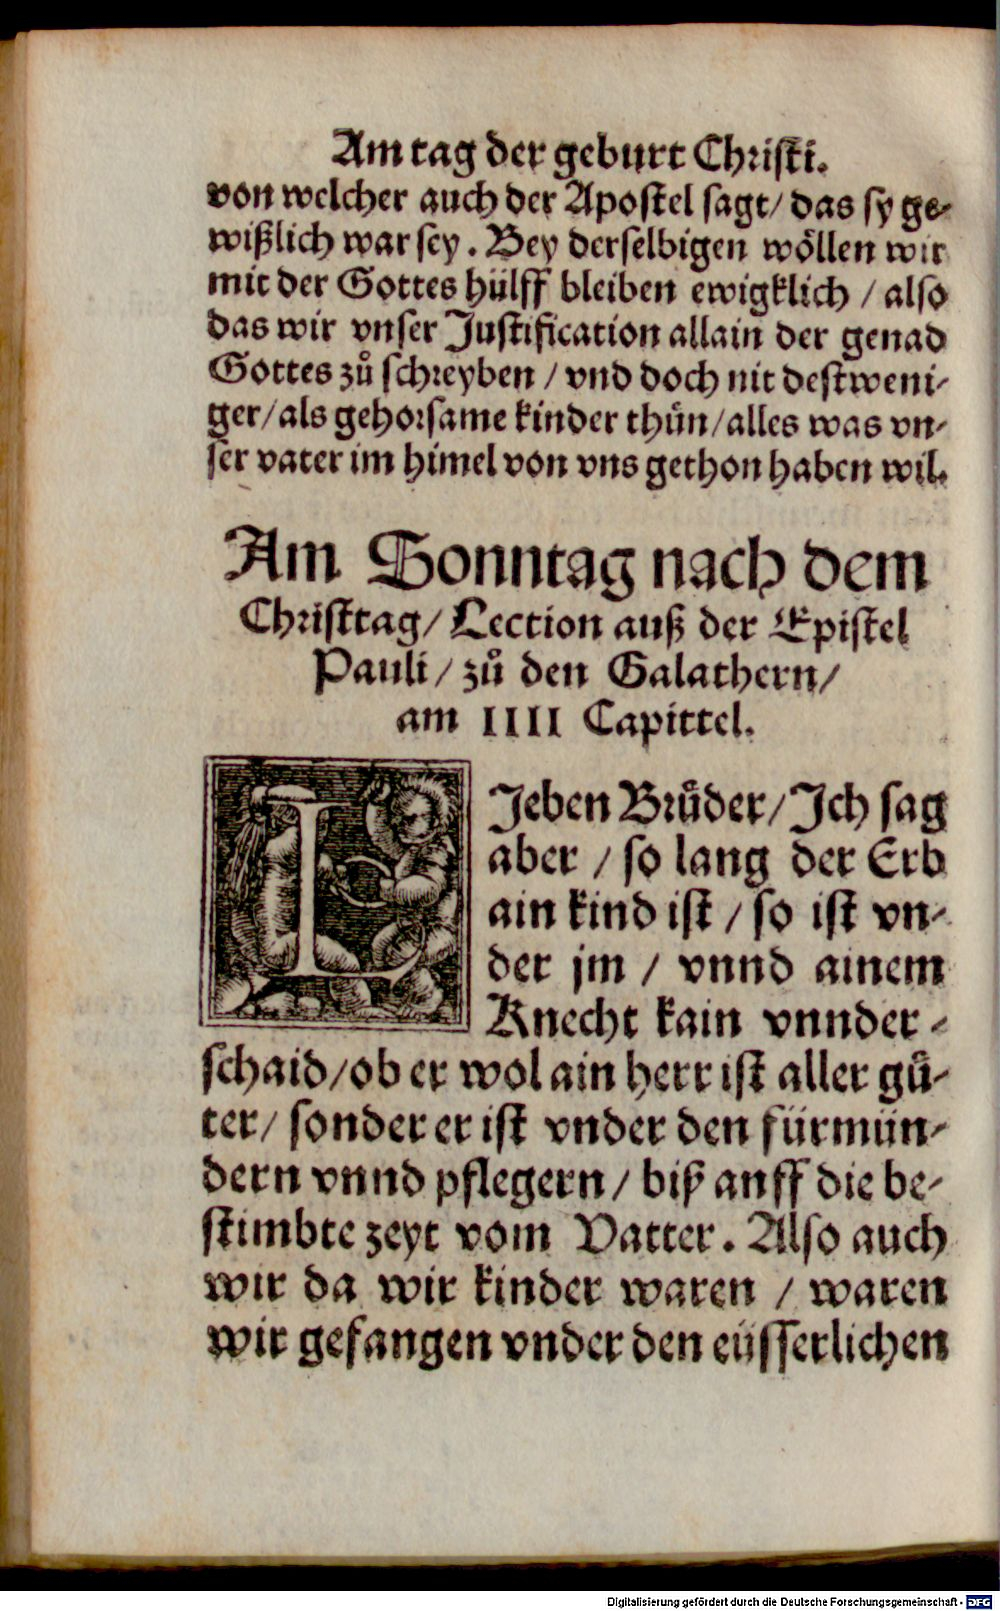 Am tag der geburt Christi.
von welcher auch der Apostel sagt/ das sy ge-
wißlich war sey. Bey derselbigen wöllen wir
mit der Gottes hülff bleiben ewigklich / also
das wir vnser Justification allain der genad
Gottes zů schreyben / vnd doch nit destweni-
ger/ als gehorsame kinder thün/ alles was vn-
ser vater im himel von vns gethon haben wil.
Am Sonntag nach dem
Christtag/ Lection auß der Epistel
Pauli/ zů den Galathern/
am IIII Capittel.
LJeben Brüder/ Jch sag
aber / so lang der Erb
ain kind ist / so ist vn-
der jm / vnnd ainem
Knecht kain vnnder-
schaid/ ob er wol ain herr ist aller gü-
ter/ sonder er ist vnder den fürmün-
dern vnnd pflegern/ biß auff die be-
stimbte zeyt vom Vatter. Also auch
wir da wir kinder waren / waren
wir gefangen vnder den eüsserlichen
Digitalisierung gefördert durch die Deutsche Forschungsgemeinschaft - DFG